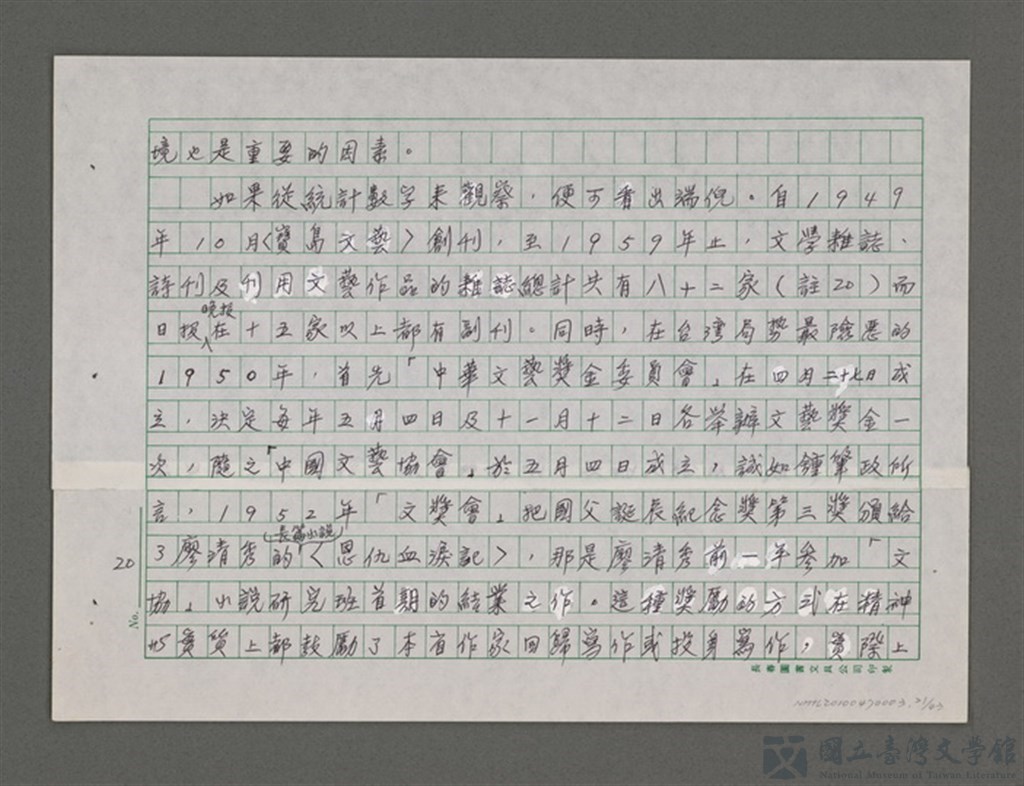 境也是重要的因素。
如果從統計數字來觀察，便可看出端倪。自1949
年10月〈寶島文藝〉創刊，至1959年止，文學雜誌、
詩刊及刊用文藝作品的雜誌總計共有八十二家（註20）而
晚報
日報在十五家以上都有副刊。同時，在台灣局勢最險惡的
1950年，首先「中華文藝獎金委員會」在四月二十七日成
立，決定每年五月四日及十一月十二日各舉辦文藝獎金一
次，隨之「中國文藝協會」於五月四日成立，誠如鍾肇政所
言，1952年「文獎會」把國父誕辰紀念獎第三獎頒給
長篇小說
了廖清秀的〈恩仇血淚記〉，那是廖清秀前一年參加「文
協」小說研究班首期的結業之作。這種獎勵的方式在精神
與實質上都鼓勵了本省作家回歸寫作或投身寫作，實際上
20
No.
長春圖書文具公司印製
NMTL20100470003.21/63
國立臺灣文學館
National Museum of Taiwan Literature